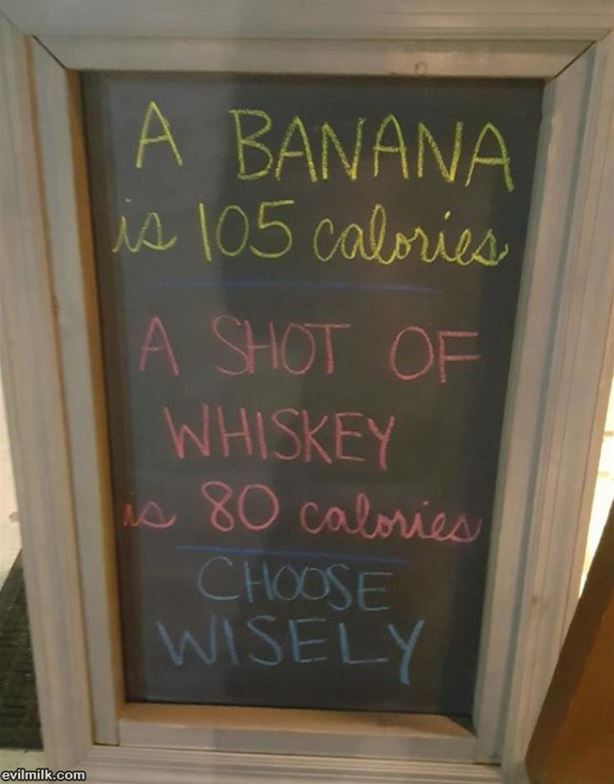 A BANANA
is 105 calories
A SHOT OF
WHISKEY
is 80 calories
CHOOSE
WISELY
evilmilk.com